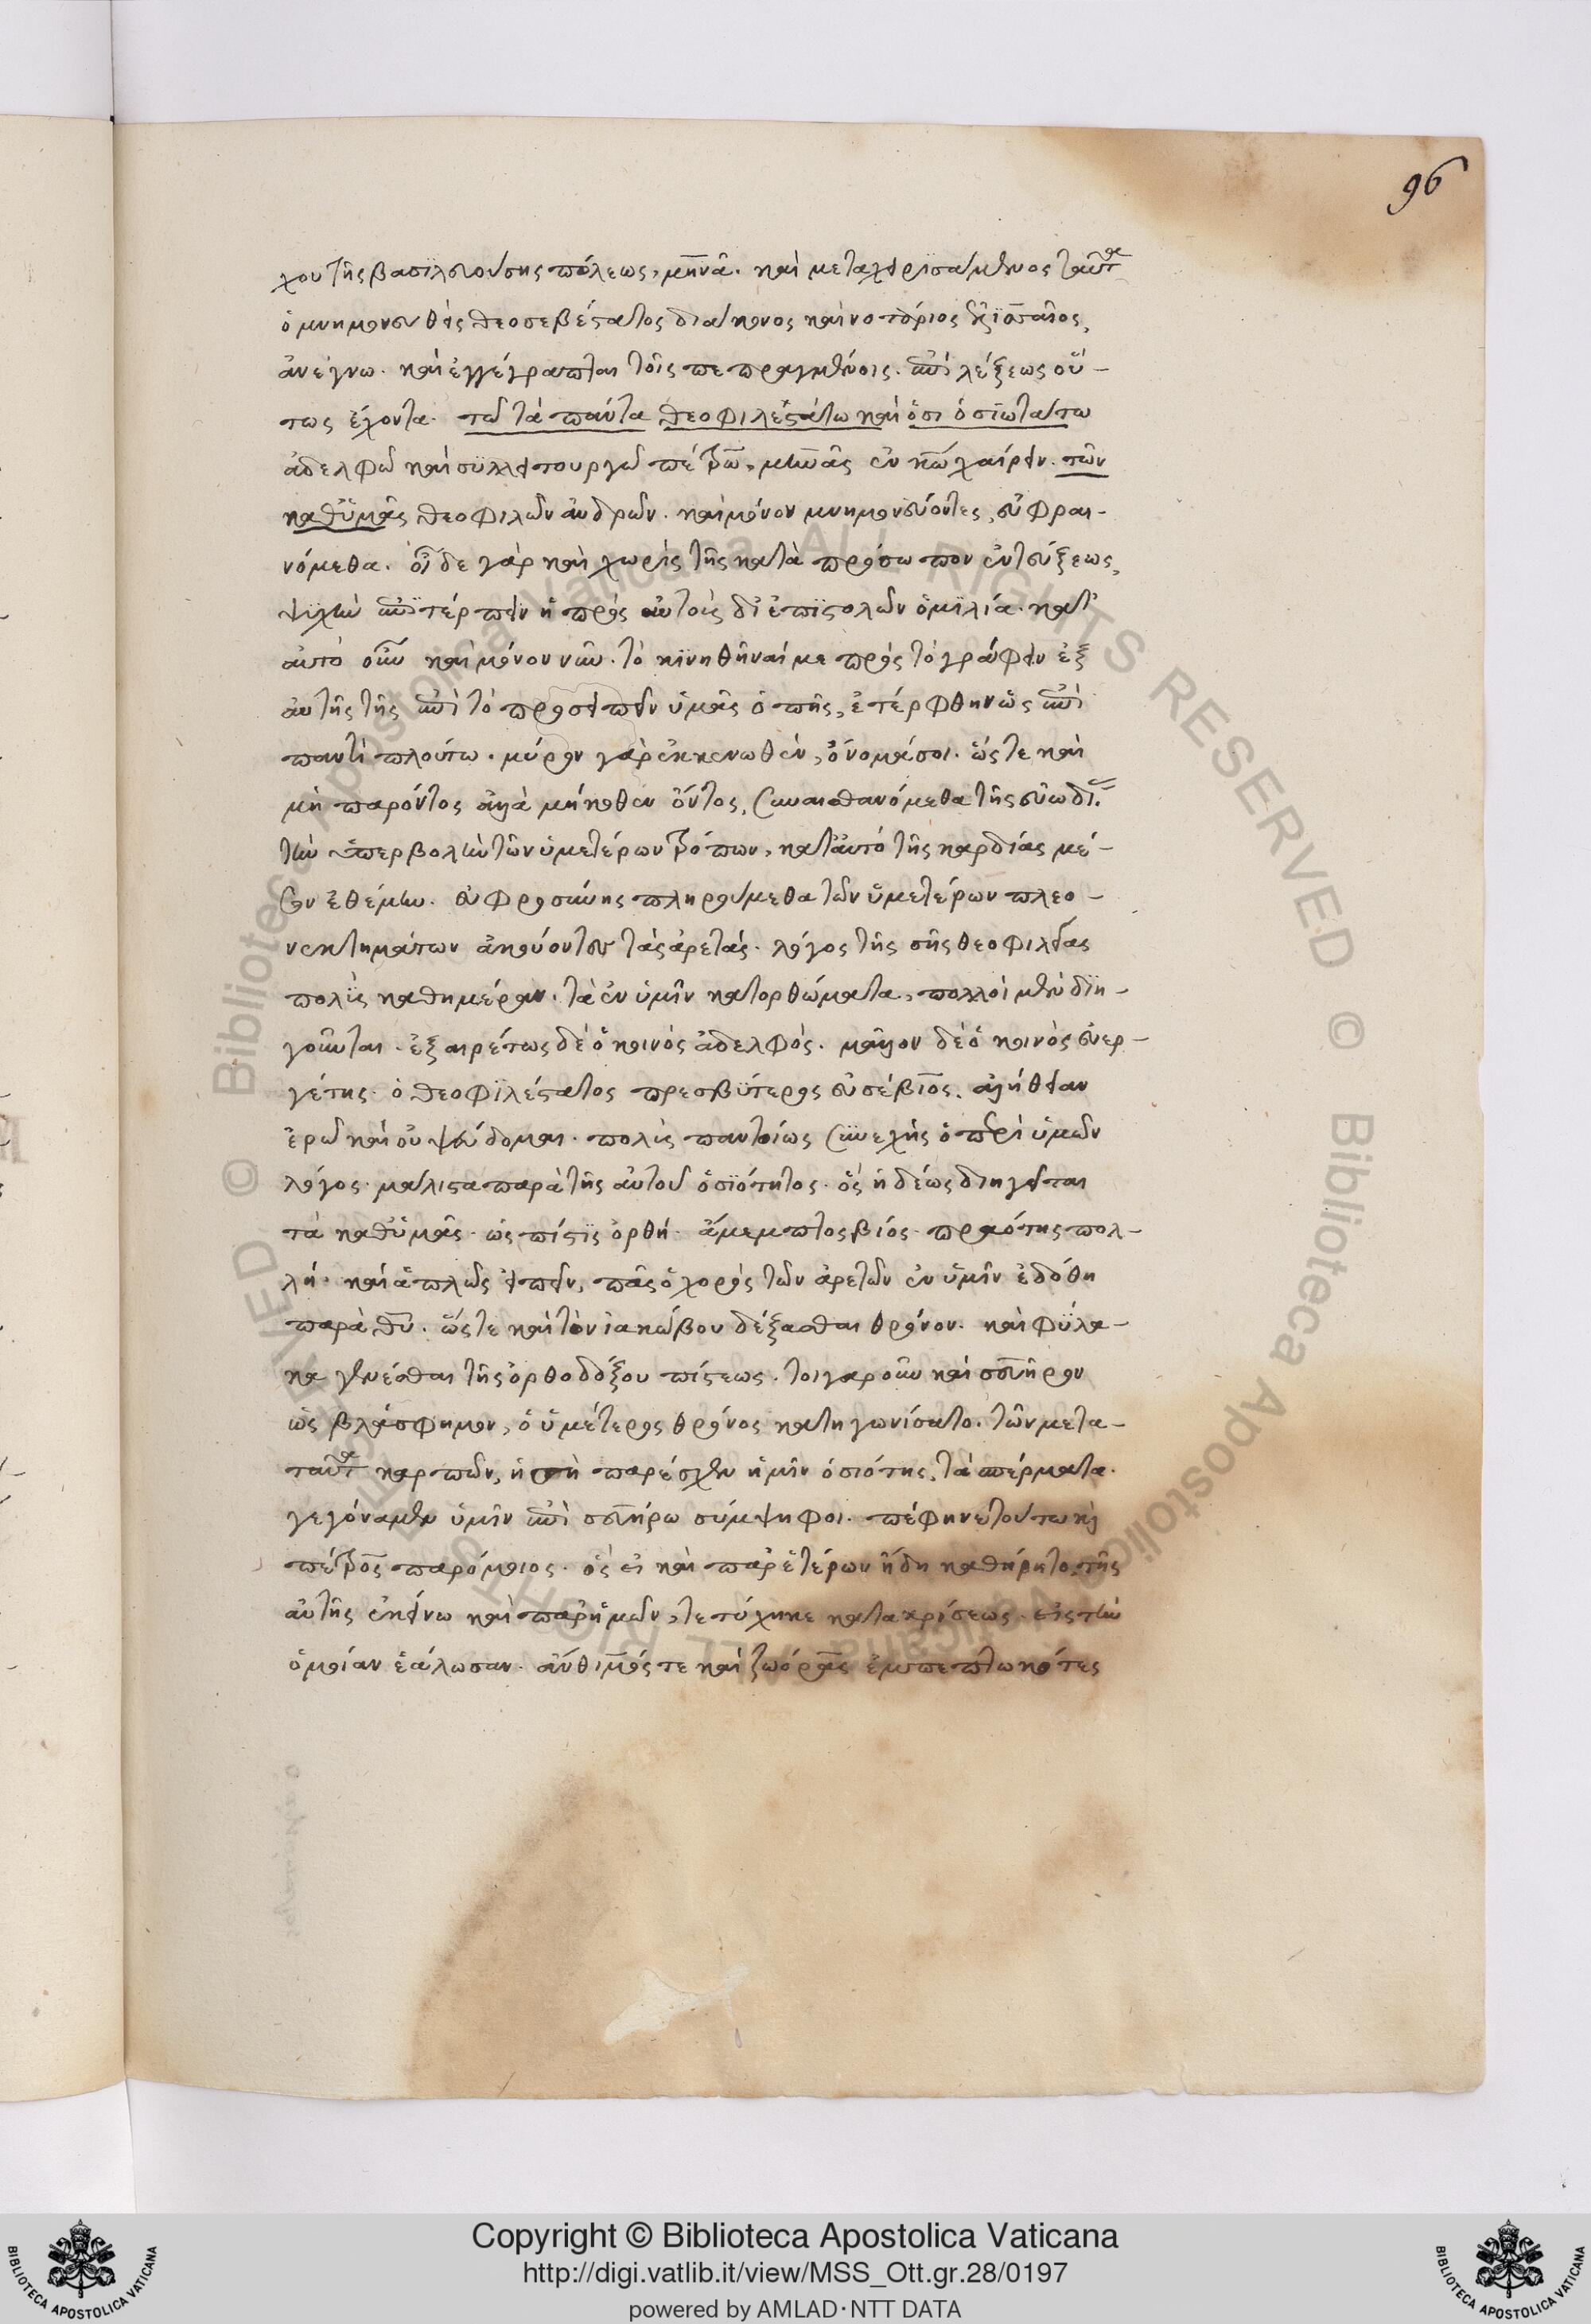 96
χου τῆς βασϊλευούσης πόλεως, μηνᾶ. καὶ μεταχειρϊσάμενος ταῦτα
ὁ μνημονευθεὶς θεοσεβέστατος διάκονος καὶ νοτάριος
ἀνέγνω. καὶ ἐγγέγραπται τοῖς πεπραγμένοις. ἐπὶ λέξεως οὕ-
τως ἔχοντα. τῶ τὰ πάντα θεοφιλεστάτω καὶ ὁσι ὁσιωτάτω
ἀδελφῶ καὶ συλλειτουργῶ πέτρω, μηνᾶς ἐν κω χαίρειν. τῶν
καθ' ὑμᾶς θεοφιλῶν ἀνδρῶν. καὶ μόνον μνημονεύοντες, εὐφραι-
νόμεθα. οἶδε γὰρ καὶ χωρὶς τῆς κατὰ πρόσωπον ἐντεύξεως,
ψϋχὴν ἐπιτέρπειν ἡ πρὸς αὐτοὺς δι' ἐπϊστολῶν ὁμϊλία. κατ'
αὐτὸ οὖν καὶ μόνον νῦν. τὸ κϊνηθῆναί με πρὸς τὸ γράφειν ἐξ
αὐτῆς τῆς ἐπὶ τὸ προσειπεῖν ὑμᾶς ὁπῆς, ἐτέρφθην ὡς ἐπὶ
παντὶ πλούτω. μύρον γὰρ ἐκκενωθὲν, ὄνομά σοι. ὥστε καὶ
μὴ παρόντος ἀλλὰ μήκοθεν ὄντος, συναισθανόμεθα τῆς εὐωδίας
τὴν ὑπερβολὴν τῶν ὑμετέρων τρόπων, κατ' αὐτὸ τῆς καρδίας μέ-
σον ἐθέμην. εὐφροσύνης πληρούμεθα τῶν ὑμετέρων πλεο-
νεκτημάτων ἀκούοντες τὰς ἀρετάς. λόγος τῆς σῆς θεοφιλείας
πολὺς καθημέραν. τὰ ἐν ὑμῖν κατορθώματα, πολλοὶ μὲν δϊη-
γοῦνται. ἐξαιρέτως δὲ ὁ κοινὸς ἀδελφὸς. μᾶλλον δὲ ὁ κοινὸς εὐερ-
γέτης. ὁ θεοφϊλέστατος πρεσβϋτερος εὐσέβϊος. ἀλήθειαν
ἐρῶ καὶ οὐ ψεύδομαι. πολὺς παντοίως συνεχὴς ὁ περὶ ὑμῶν
λόγος. μάλιστα παρὰ τῆς αὐτοῦ ὁσϊότητος. ὃς ἡδέως διηγεῖται
τὰ καθ' ὑμᾶς. ὡς πίστϊς ὀρθή. ἄμεμπτος βίος. πραότης πολ-
λή. καὶ ἁπλῶς εἰπεῖν, πᾶς ὁ χορὸς τῶν ἀρετῶν ἐν ὑμῖν ἐδόθη
παρὰ θυ. ὥστε καὶ τὸν ἰακώβου δέξασθαι θρόνον. καὶ φϋλα-
κα γενέσθαι τῆς ὀρθοδόξου πίστεως. τοιγαροῦν καὶ σευῆρον
ὡς βλάσφημον, ὁ ὑμέτερος θρόνος κατηγωνίσατο. τῶν μετα-
ταῦτα καρπῶν, ἡ σὴ παρέσχεν ἡμῖν ὁσιότης, τὰ σπέρματα.
γεγόναμεν ὑμῖν ἐπὶ σευήρω σύμψηφοι. πέφηνε τούτω καὶ
πέτρος παρόμοιος. ὃς εἰ καὶ παρ' ἑτέρων ἤδη καθήρητο, τῆς
αὐτῆς ἐκείνω καὶ παρ' ἡμῶν, τετύχηκε κατακρίσεως. εἰς τὴν
ὁμοίαν ἑάλωσαν. ἄνθιμός τε καὶ ζωόρας ἐμπεπτωκότες
Copyright © Biblioteca Apostolica Vaticana
http://digi.vatlib.it/view/MSS_Ott.gr.28/0197
powered by AMLAD·NTT DATA